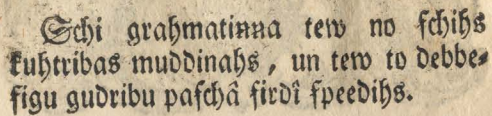 Schi grahmatinna tew no schihs
kuhtribas muddinahs, un tew to debbe⸗
sigu gudribu paschâ sirdî speedihs.